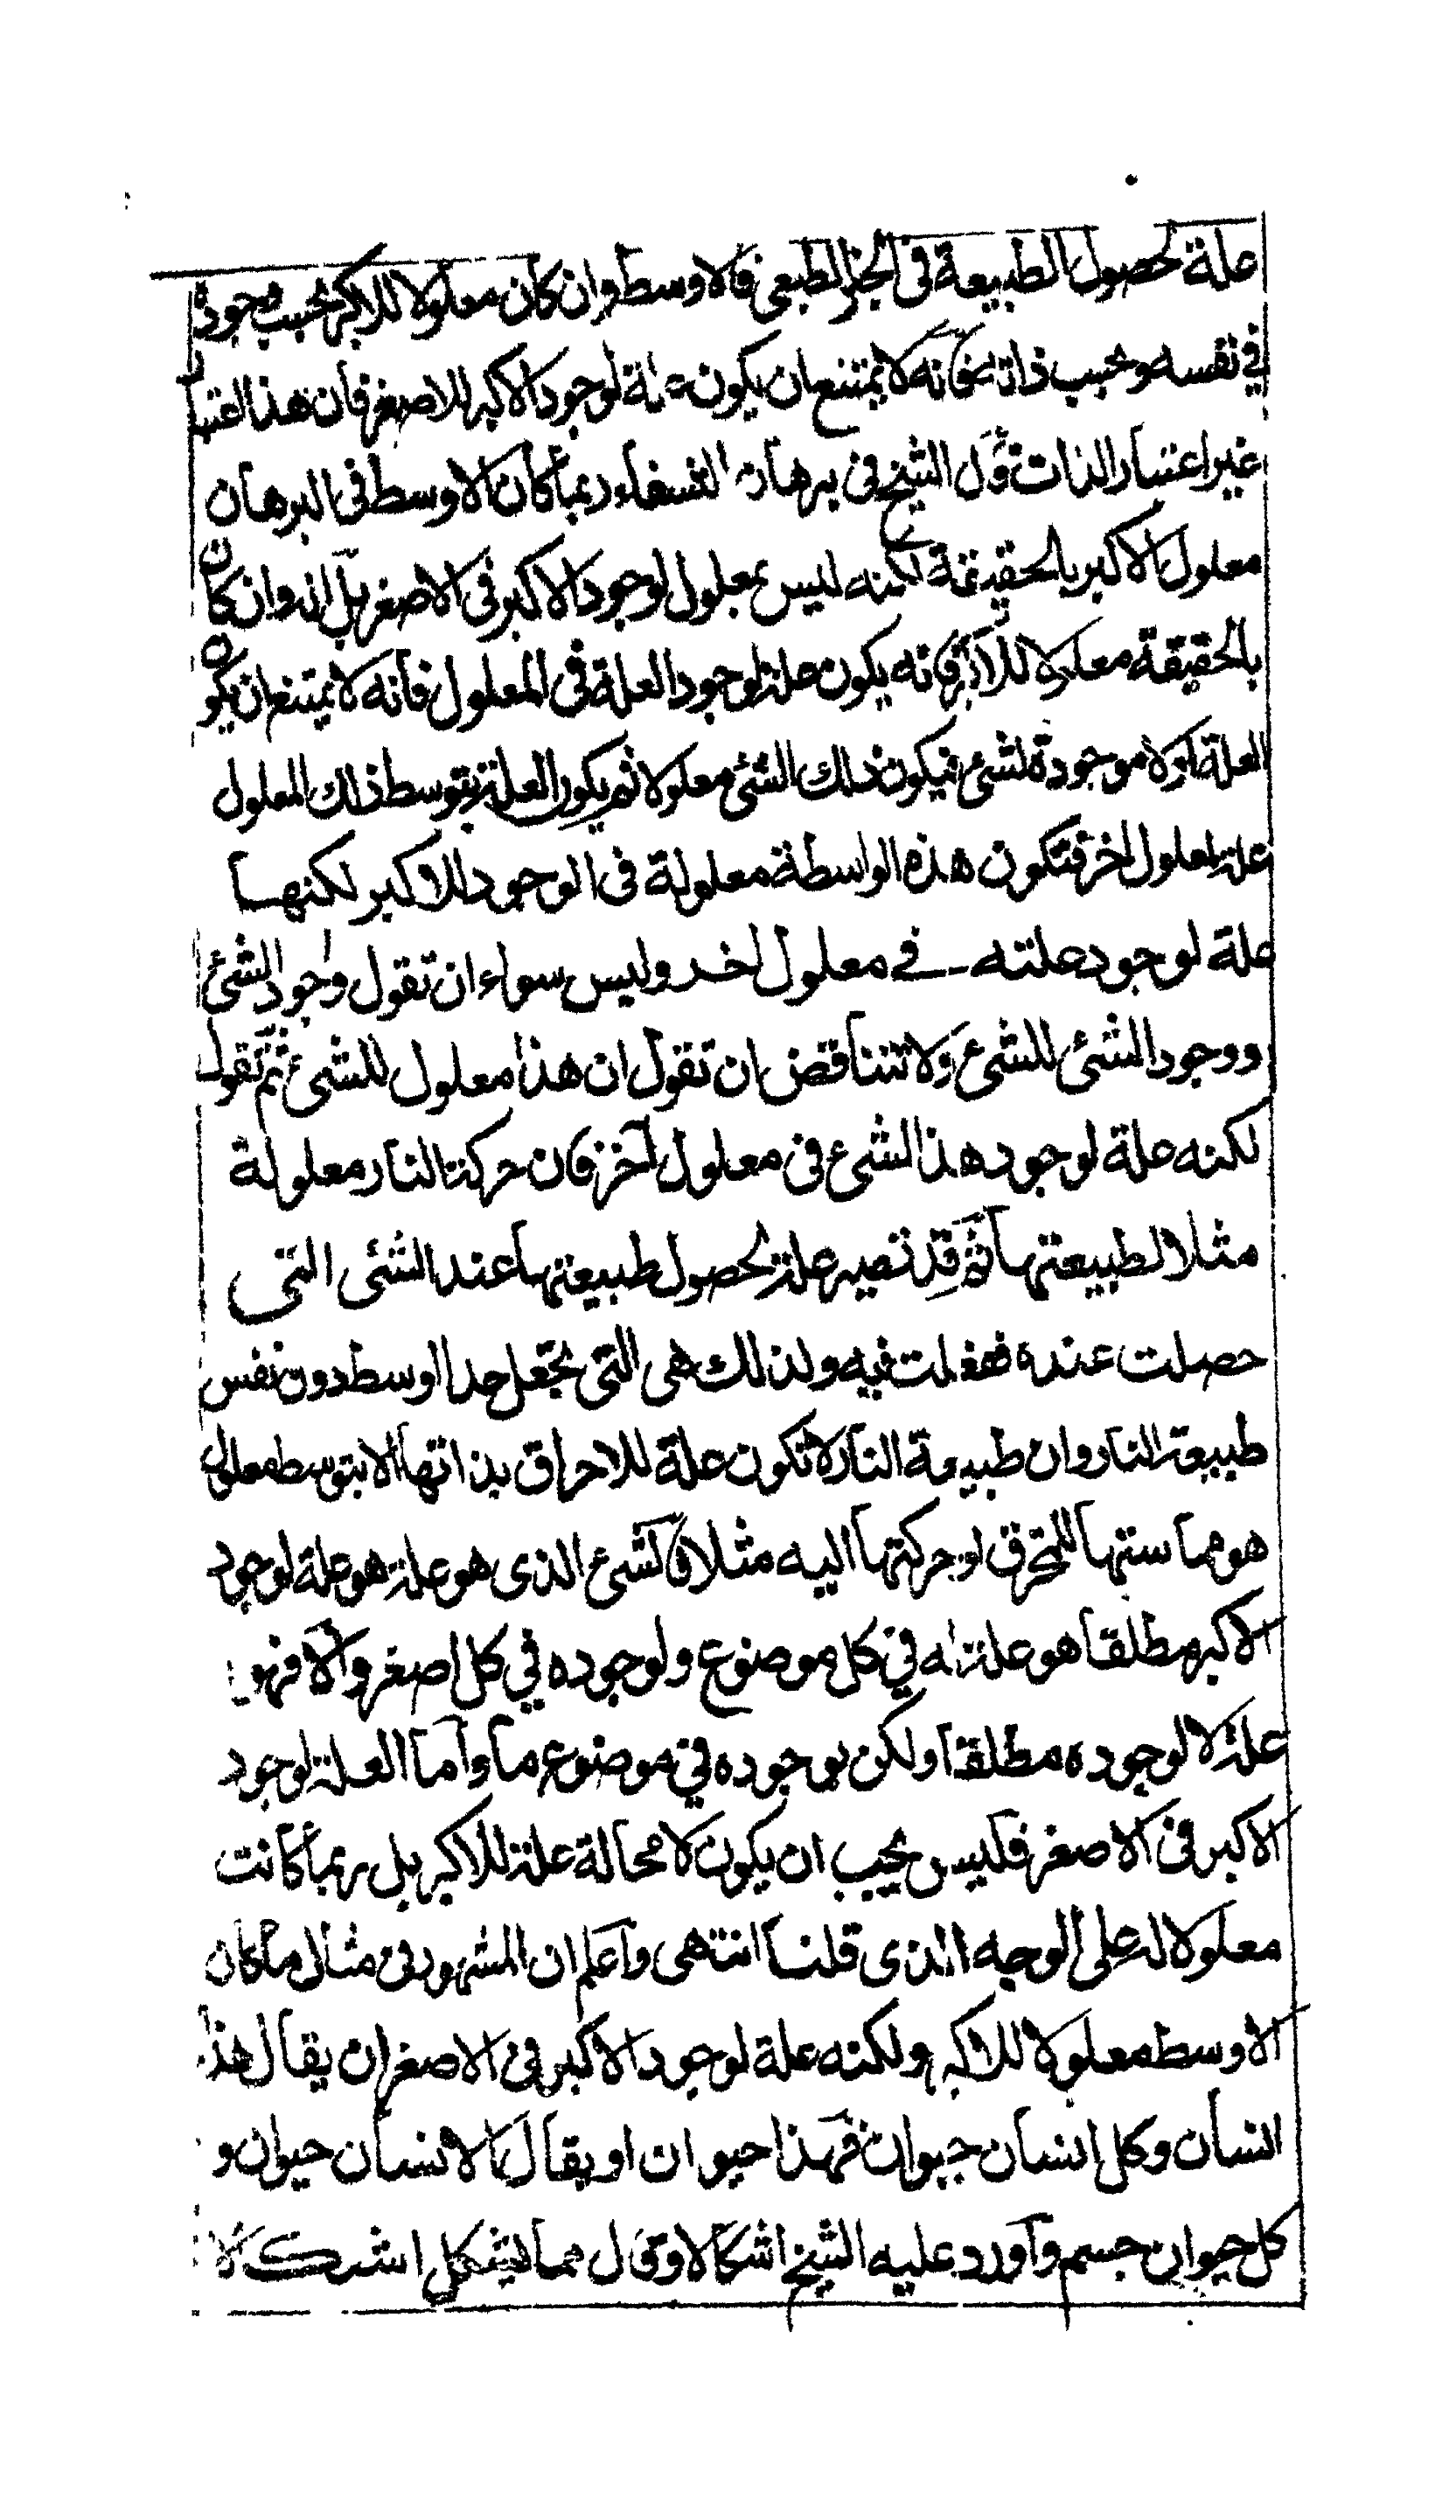 علة لحصول الطبيعة فى الحيز الطبعى فالاوسط وان كان معلولا للاكبر بحسب وجوده
في نفسه وبحسب ذاته فانه لا يمتنع ان يكون علة لوجود الاكبر للاصغر فان هذا اعتبار
غير اعتبار الذات قال الشيخ فى برهان الشفاء ربما كان الاوسط فى البرهان
معلول الاكبر بالحقيقة لكنه ليس بمعلول لوجود الاكبر فى الاصغر بل انه وان كان
بالحقيقة معلولا للاكبر فانه يكون علة لوجود العلة فى المعلول فانه لا يمتنع ان يكون
العلة اولا موجودة لشئ فيكون ذلك الشئ معلولا ثم يكون العلة بتوسط ذلك المعلول
علة لمعلول اخر فتكون هذه الواسطة معلولة فى الوجود للاكبر لكنها
علة لوجود علته فے معلول اخر وليس سواء ان تقول وجود الشئ
ووجود الشئ للشئ ولا تتناقض ان تقول ان هذا معلول للشئ ثم تقول
لكنه علة لوجود هذا الشئ فى معلول آخر فان حركة النار معلولة
مثلا لطبيعتها ثم قد تصير علة لحصول طبيعتها عند الشئى التى
حصلت عنده ففعلت فيه ولذلك هى التى تجعل حدا اوسط دون نفس
طبيعة النار وان طبيعة النار لا تكون علة للاحراق بذاتها الا بتوسط معلول
هو مماستها للمحترق او حركتها اليه مثلا فالشئ الذى هو علة هو علة لوجود
الاكبر مطلقا هو علة له في كل موضوع ولوجوده في كل اصغر والا فهو
علة لا لوجوده مطلقا ولكن لوجوده في موضوع ما واما العلة لوجود
الاكبر فى الاصغر فليس يجب ان يكون لا محالة علة للاكبر بل ربما كانت
معلولا له على الوجه الذى قلنا انتهى واعلم ان المشهور فى مثال ما كان
الاوسط معلولا للاكبر ولكنه علة لوجود الاكبر فى الاصغر ان يقال هذا
انسان وكل انسان حيوان فهذا حيوان او يقال الانسان حيوان و
كل حيوان جسم واورد عليه الشيخ اشكالا وقال مما يشكل اشكالا